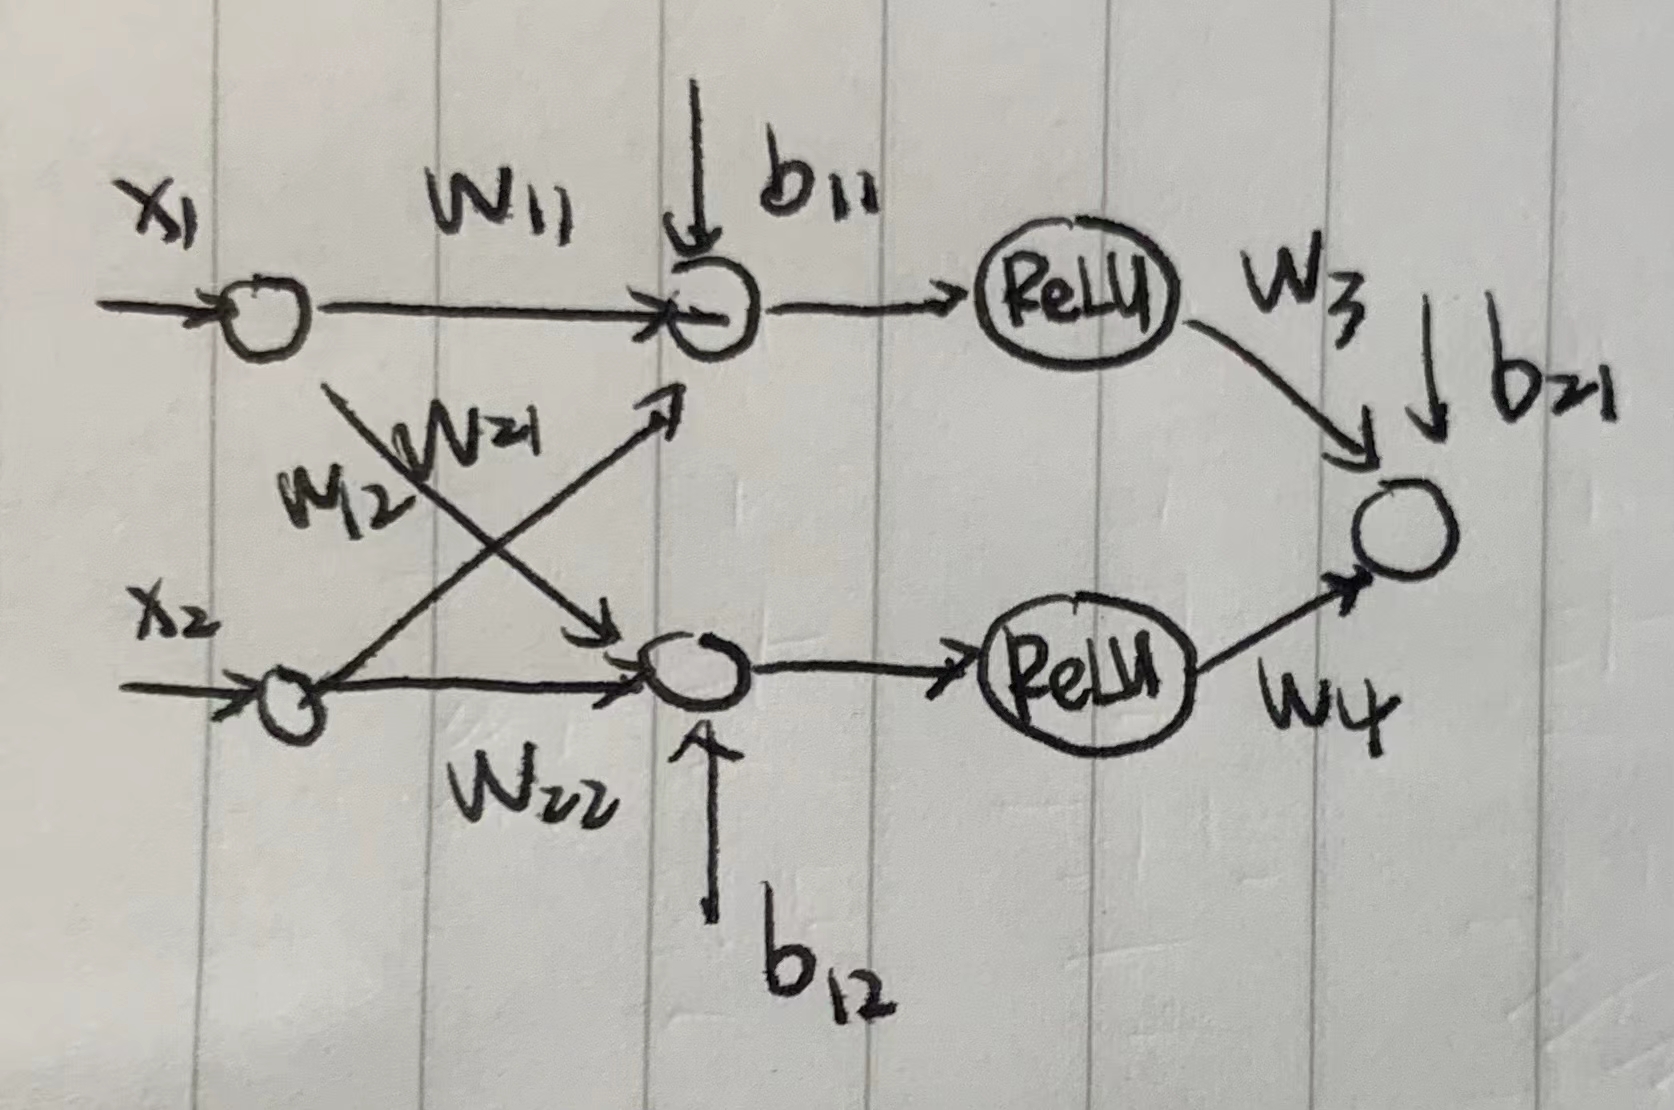 x1
w11
b11
ReLU
w3
b21
w21
w12
x2
ReLU
w4
w22
b12